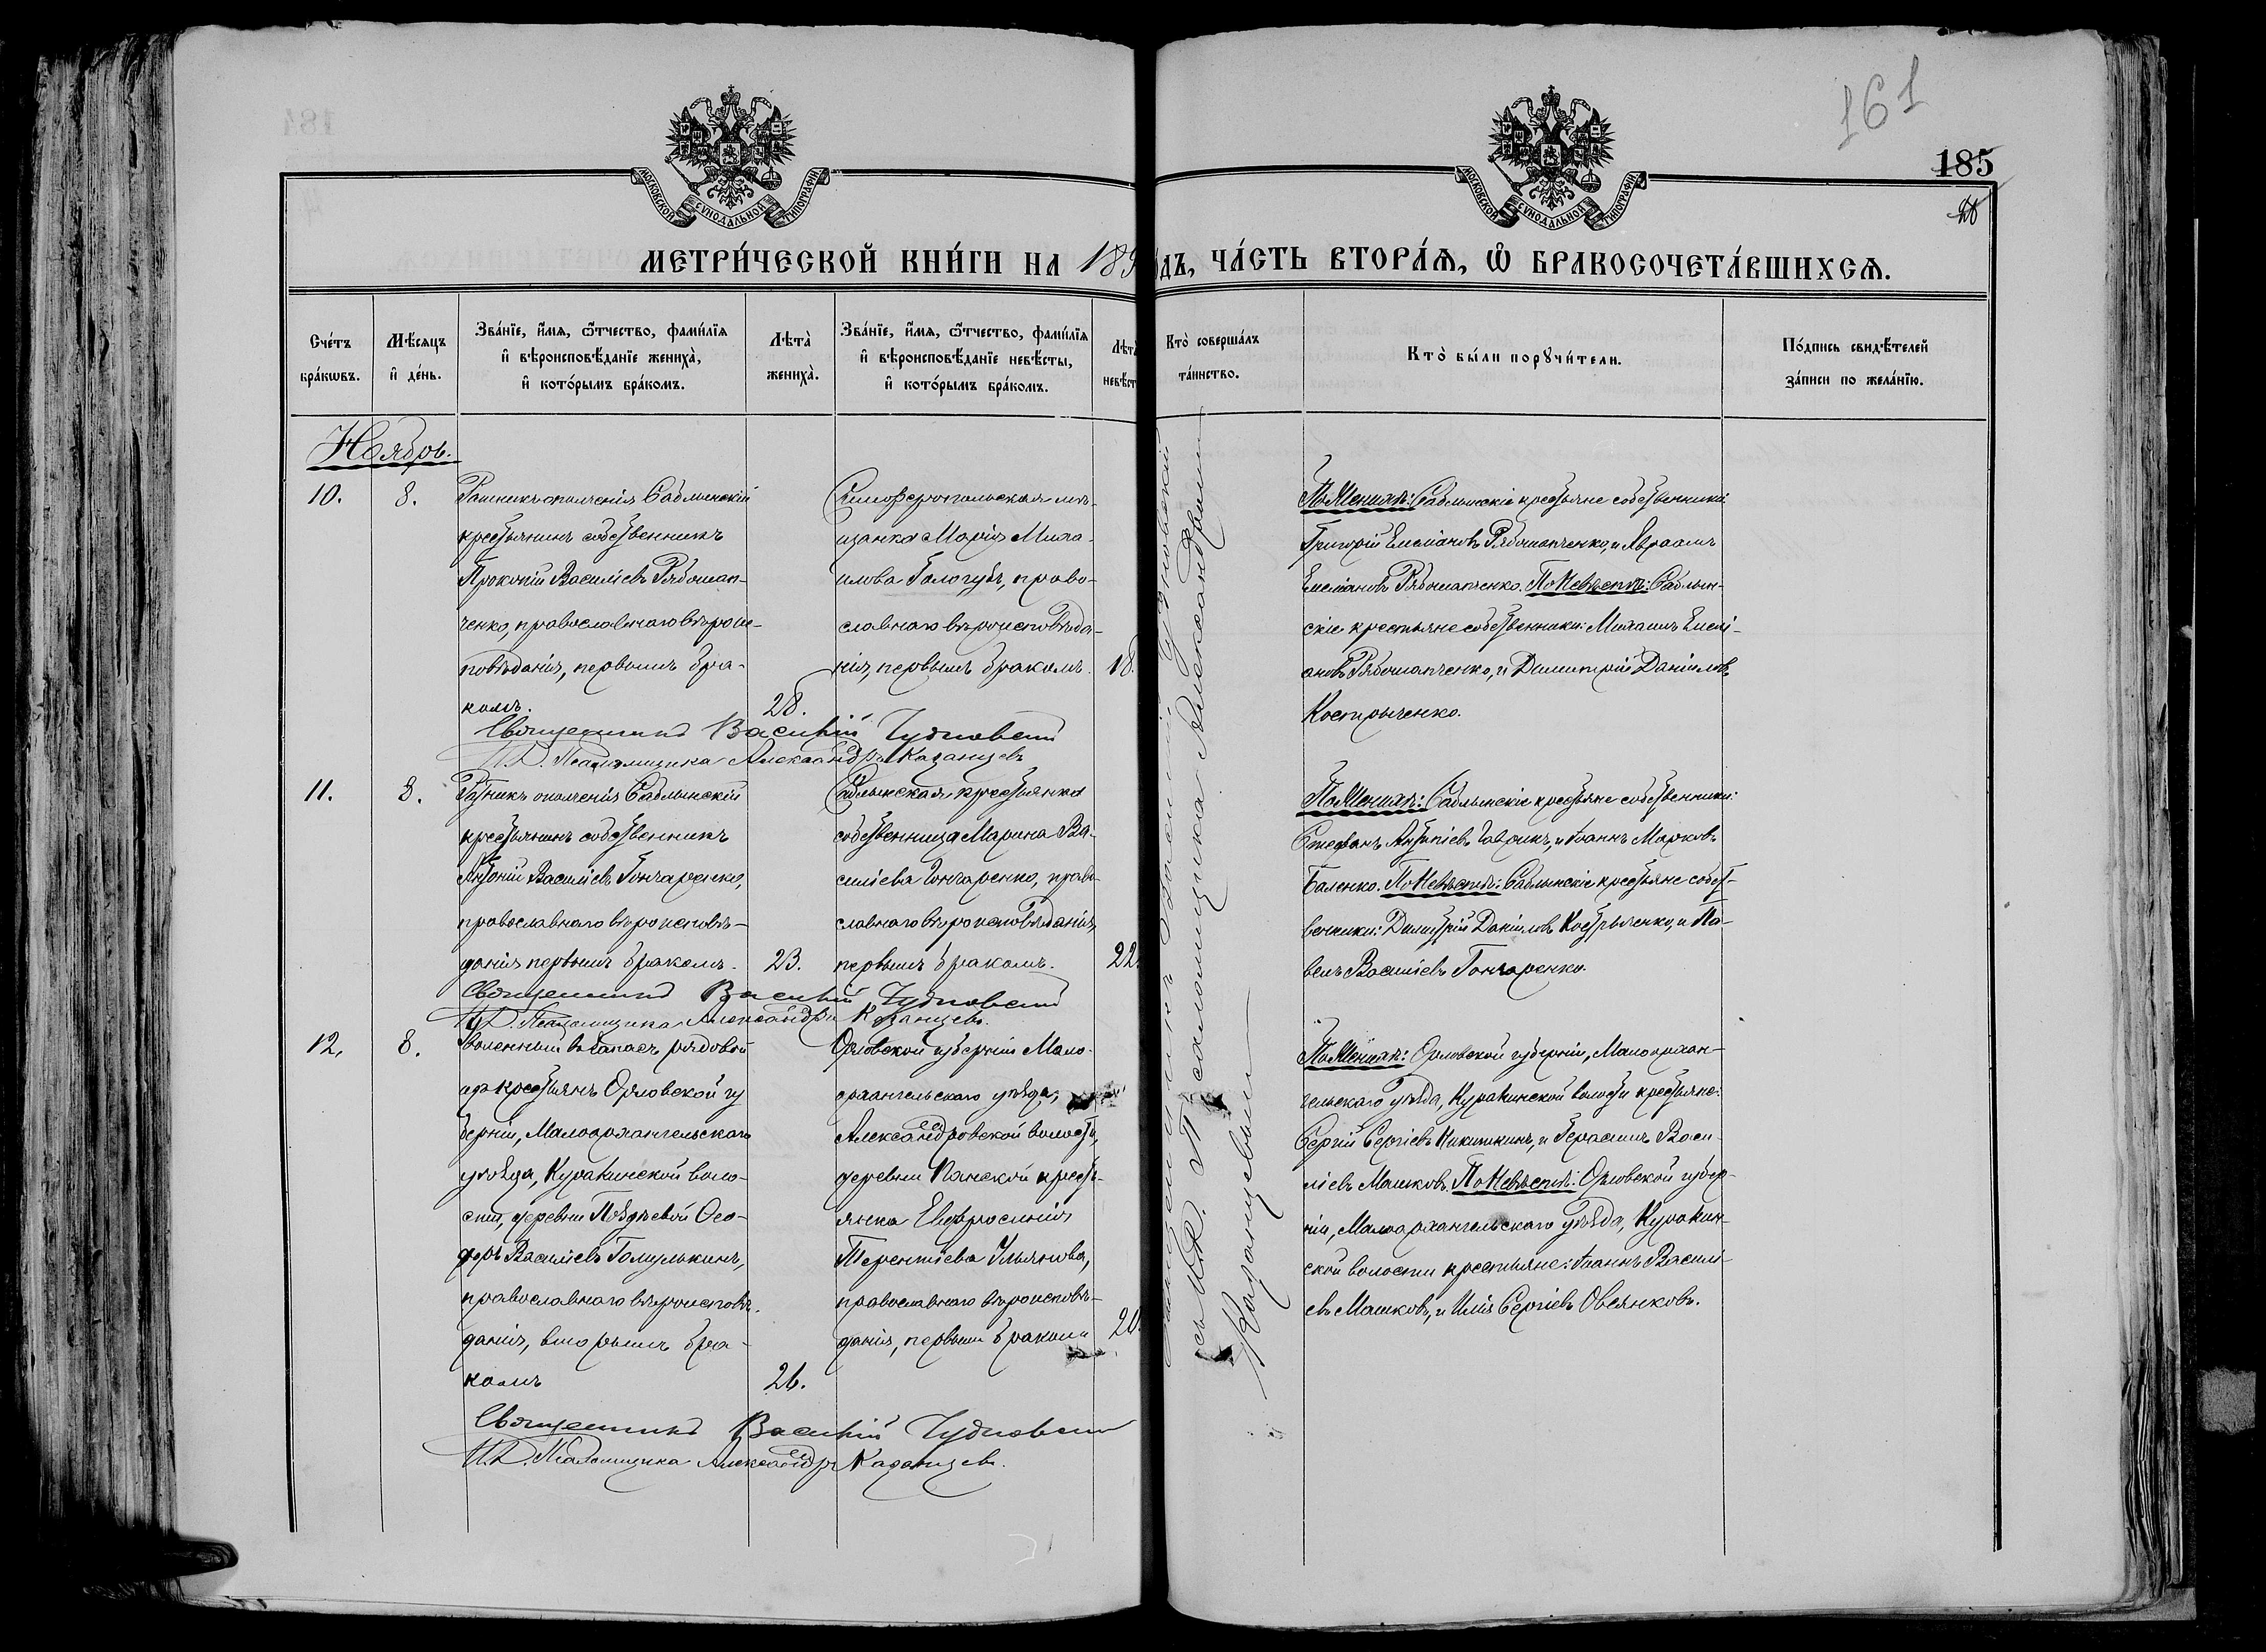 161
185
МОСКОВСКОЙ СУНОДАЛЬНОЙ ТИПОГРАФІИ
МОСКОВСКОЙ СУНОДАЛЬНОЙ ТИПОГРАФІИ
МЕТРИ́ЧЕСКОЙ КНИ́ГИ НА 189
ДЪ, ЧА́СТЬ ВТОРА́Ѧ, Ѽ БРАКОСОЧЕТА́ВШИХСѦ.
Сче́тъ бра́кѡвъ.
Мѣ́сяцъ и҆ де́нь.
Зва́нїе, и҆́мѧ, ѻ҆́тчество, фами́лїѧ
и҆ вѣроисповѣ́данїе жениха̀,
и҆ кото́рымъ бра́комъ.
Лѣта̀ жениха̀.
Зва́нїе, и҆́мѧ, ѻ҆́тчество, фами́лїѧ
и҆ вѣроисповѣ́данїе невѣ́сты,
и҆ кото́рымъ бра́комъ.
Лѣта̀
невѣст
Кто̀ соверша́лъ
та́инство.
Кто̀ бы́ли порꙋчи́тели.
По́дпись свидѣ́телей
за́писи по жела́нїю.
Ноябрь.
10.
8.
Ратникъ ополченія Саблынскій
крестьянинъ собственникъ
Прокопій Василіевъ Рябошап-
ченко, православнаго вѣроис-
повѣданія, первымъ бра-
комъ.
28.
Симферопольская мѣ-
щанка Марія Миха-
илова Гологубъ, право-
славнаго вѣроисповѣда-
нія, первымъ бракомъ.
18.
По Женихѣ: Саблынскіе крестьяне собственники:
Григорій Емеліановъ Рябошапченко, и Авраамъ
Емеліановъ Рябошапченко. По Невѣстѣ: Саблын-
скіе крестьяне собственники: Михаилъ Емелі-
ановъ Рябошапченко, и Димитрій Даніиловъ
Кострыченко.
Священникъ Василій Чудновскій
И.Д. Псаломщика Александръ Казанцевъ
11.
8.
Ратникъ ополченія Саблынскій
крестьянинъ собственникъ
Антоній Василіевъ Гончаренко,
православнаго вѣроисповѣ-
данія первымъ бракомъ.
23.
Саблынская крестьянка
собственница Марина Ва-
силіева Гончаренко, право-
славнаго вѣроисповѣданія,
первымъ бракомъ.
22.
По Женихѣ: Саблынскіе крестьяне собственники:
Стефанъ Антипіевъ Гаврикъ, и Іоаннъ Марковъ
Баленко. По Невѣстѣ: Саблынскіе крестьяне собст-
венники: Димитрій Даніиловъ Кострыченко, и Па-
велъ Василіевъ Гончаренко.
Священникъ Василій Чудновскій
И.Д. Псаломщика Александръ Казанцевъ.
12.
8.
Уволенный въ запасъ рядовой
изъ крестьянъ Орловской гу
берніи, Малоархангельскаго
уѣзда, Куракинской воло-
сти, деревни
доръ Василіевъ Голиулькинъ,
православнаго вѣроисповѣ-
данія, вторымъ бра-
комъ
26.
Орловской губерніи Мало-
архангельскаго уѣзда,
Александровской волости,
деревни Панской кресть-
янка Евфросинія
Терентіева Ульянова,
православнаго вѣроисповѣ-
данія, первымъ бракомъ
20.
По Женихѣ: Орловской губерніи, Малоархан-
гельскаго уѣзда, Куракинской волости крестьяне:
Сергій Сергіевъ Никишкинъ, и Герасимъ Васи-
ліевъ Машковъ. По Невѣстѣ: Орловской губер-
ніи, Малоархангельскаго уѣзда, Куракин-
ской волости крестьяне: Іоаннъ Василі-
евъ Машковъ, и Илія Сергіевъ Овсянковъ.
Священникъ Василій Чудновскій
И.Д. Псаломщика Александръ Казанцевъ.
Священникъ Василій Чудновскій
съ И.Д. Псаломщика Александромъ
Казанцевымъ